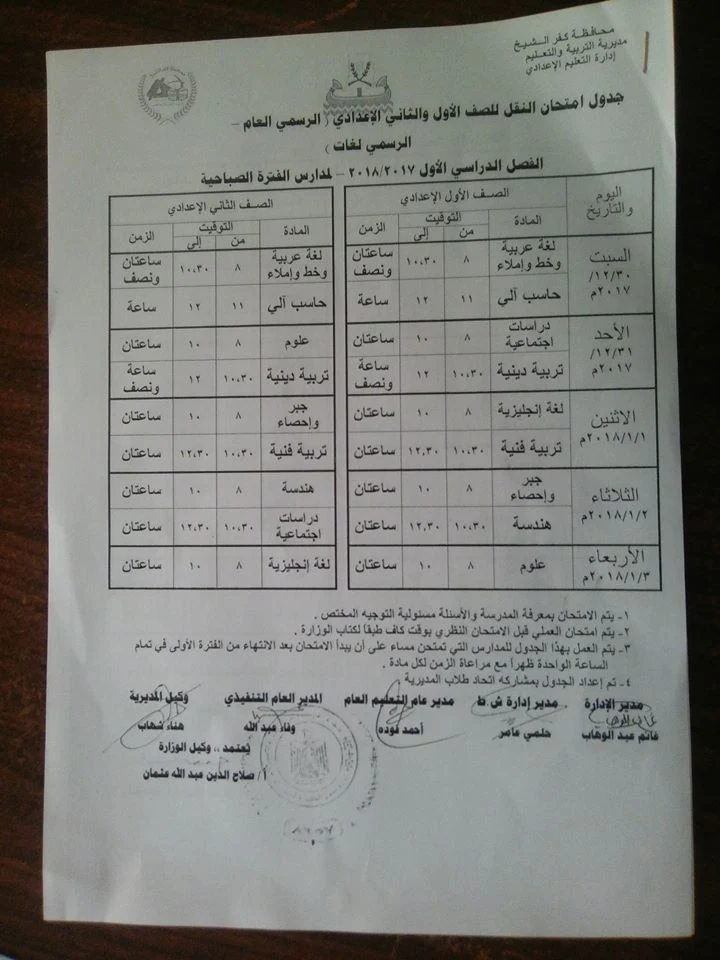 محافظة كفر الشيخ
مديرية التربية والتعليم
إدارة التعليم الإعدادي
جدول امتحان النقل للصف الأول والثاني الإعدادي ( الرسمي العام –
الرسمي لغات )
الفصل الدراسي الأول ٢٠١٨/٢٠١٧ – لمدارس الفترة الصباحية
اليوم والتاريخ | الصف الأول الإعدادي | الصف الثاني الإعدادي
المادة | التوقيت | الزمن | المادة | التوقيت | الزمن
من | إلى | من | إلى
السبت ١٢/٣٠/ ٢٠١٧م | لغة عربية وخط وإملاء | ٨ | ١٠،٣٠ | ساعتان ونصف | لغة عربية وخط وإملاء | ٨ | ١٠،٣٠ | ساعتان ونصف
حاسب آلي | ١١ | ١٢ | ساعة | حاسب آلي | ١١ | ١٢ | ساعة
الأحد ١٢/٣١/ ٢٠١٧م | دراسات اجتماعية | ٨ | ١٠ | ساعتان | علوم | ٨ | ١٠ | ساعتان
تربية دينية | ١٠،٣٠ | ١٢ | ساعة ونصف | تربية دينية | ١٠،٣٠ | ١٢ | ساعة ونصف
الاثنين ٢٠١٨/١/١م | لغة إنجليزية | ٨ | ١٠ | ساعتان | جبر وإحصاء | ٨ | ١٠ | ساعتان
تربية فنية | ١٠،٣٠ | ١٢،٣٠ | ساعتان | تربية فنية | ١٠،٣٠ | ١٢،٣٠ | ساعتان
الثلاثاء ٢٠١٨/١/٢م | جبر وإحصاء | ٨ | ١٠ | ساعتان | هندسة | ٨ | ١٠ | ساعتان
هندسة | ١٠،٣٠ | ١٢،٣٠ | ساعتان | دراسات اجتماعية | ١٠،٣٠ | ١٢،٣٠ | ساعتان
الأربعاء ٢٠١٨/١/٣م | علوم | ٨ | ١٠ | ساعتان | لغة إنجليزية | ٨ | ١٠ | ساعتان
١- يتم الامتحان بمعرفة المدرسة والأسئلة مسئولية التوجيه المختص .
٢- يتم امتحان العملي قبل الامتحان النظري بوقت كاف طبقاً لكتاب الوزارة .
٣- يتم العمل بهذا الجدول للمدارس التي تمتحن مساء على أن يبدأ الامتحان بعد الانتهاء من الفترة الأولى في تمام
الساعة الواحدة ظهراً مع مراعاة الزمن لكل مادة .
٤ - تم إعداد الجدول بمشاركه اتحاد طلاب المديرية
مدير الإدارة مدير إدارة ش.ط مدير عام التعليم العام المدير العام التنفيذي وكيل المديرية
غانم عبد الوهاب حلمي عامر أحمد فوده وفاء عبد الله هناء شهاب
يُعتمد ،، وكيل الوزارة
أ/ صلاح الدين عبد الله عثمان